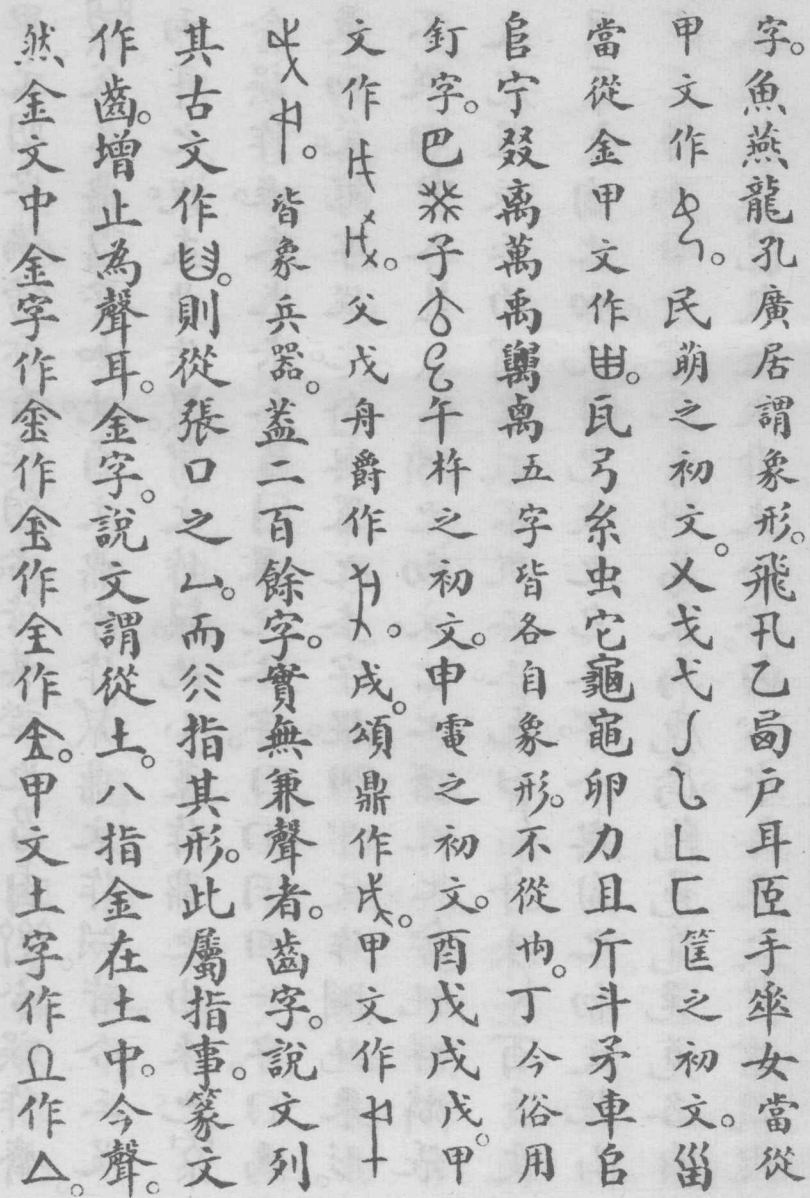 字。魚燕龍孔廣居謂象形。飛卂乙鹵戶耳𦣞手𠦬女當從
甲文作。民萌之初文。乂戈弋丿乀乚匚筐之初文。甾
當從金甲文作。瓦弓糸虫它龜黽卵力且斤斗矛車𠂤
𨸏宁叕离萬禹𥜿禼五字皆各自象形。不從禸。丁今俗用
釘字。巴癸子午杵之初文。申電之初文。酉戊戌戊。甲
文作。父戊舟爵作。戌。頌鼎作。甲文作
。皆象兵器。葢二百餘字。實無兼聲者。齒字。說文列
其古文作。則從張口之凵。而指其形。此屬指事。篆文
作齒。增止為聲耳。金字。說文謂從土。八指金在土中。今聲。
然金文中金字作作作作。甲文土字作作。